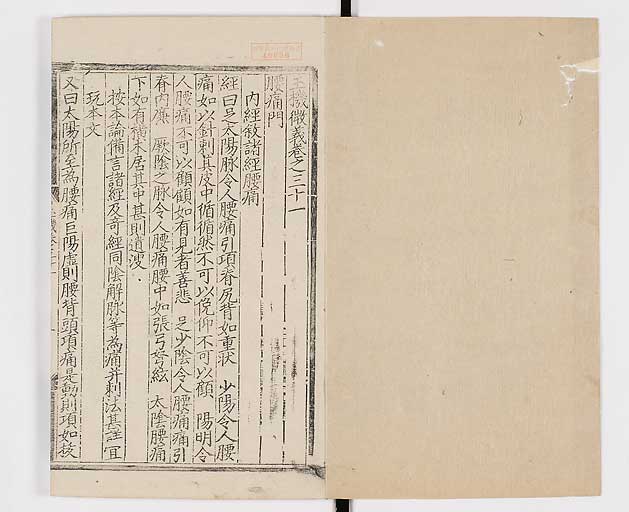 玉機微義卷之三十一
腰痛門
內經敘諸經腰痛
經曰足太陽脉令人腰痛引項脊尻背如重狀 少陽令人腰
痛如以針刺其皮中循循然不可以俛仰不可以顧 陽明令
人腰痛不可以顧顧如有見者善悲 足少陰令人腰痛痛引
脊內廉 厥陰之脉令人腰痛腰中如張弓弩絃 太陰腰痛
下如有橫木居其中甚則遺溲
按本論備言諸經及奇經同陰解脉等為痛并刺法甚詳宜
玩本文
又曰太陽所至為腰痛巨陽虛則腰背頭項痛是動則項如拔